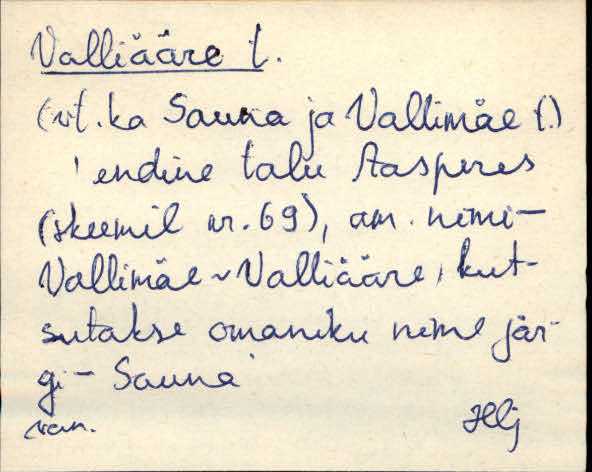 Valliääre t.
(vt. ka Sauna ja Vallimäe t.)
' endine talu Aasperes
(skeemil nr. 69), am. nimi-
Vallimäe ~ Valliääre, kut-
sutakse omaniku nime jär-
gi - Sauna'
van. Hlj